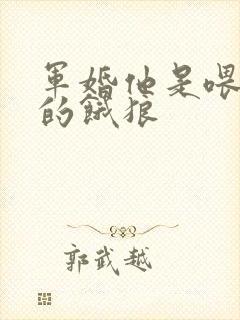 軍婚他是喂
的餓狼
郭武越